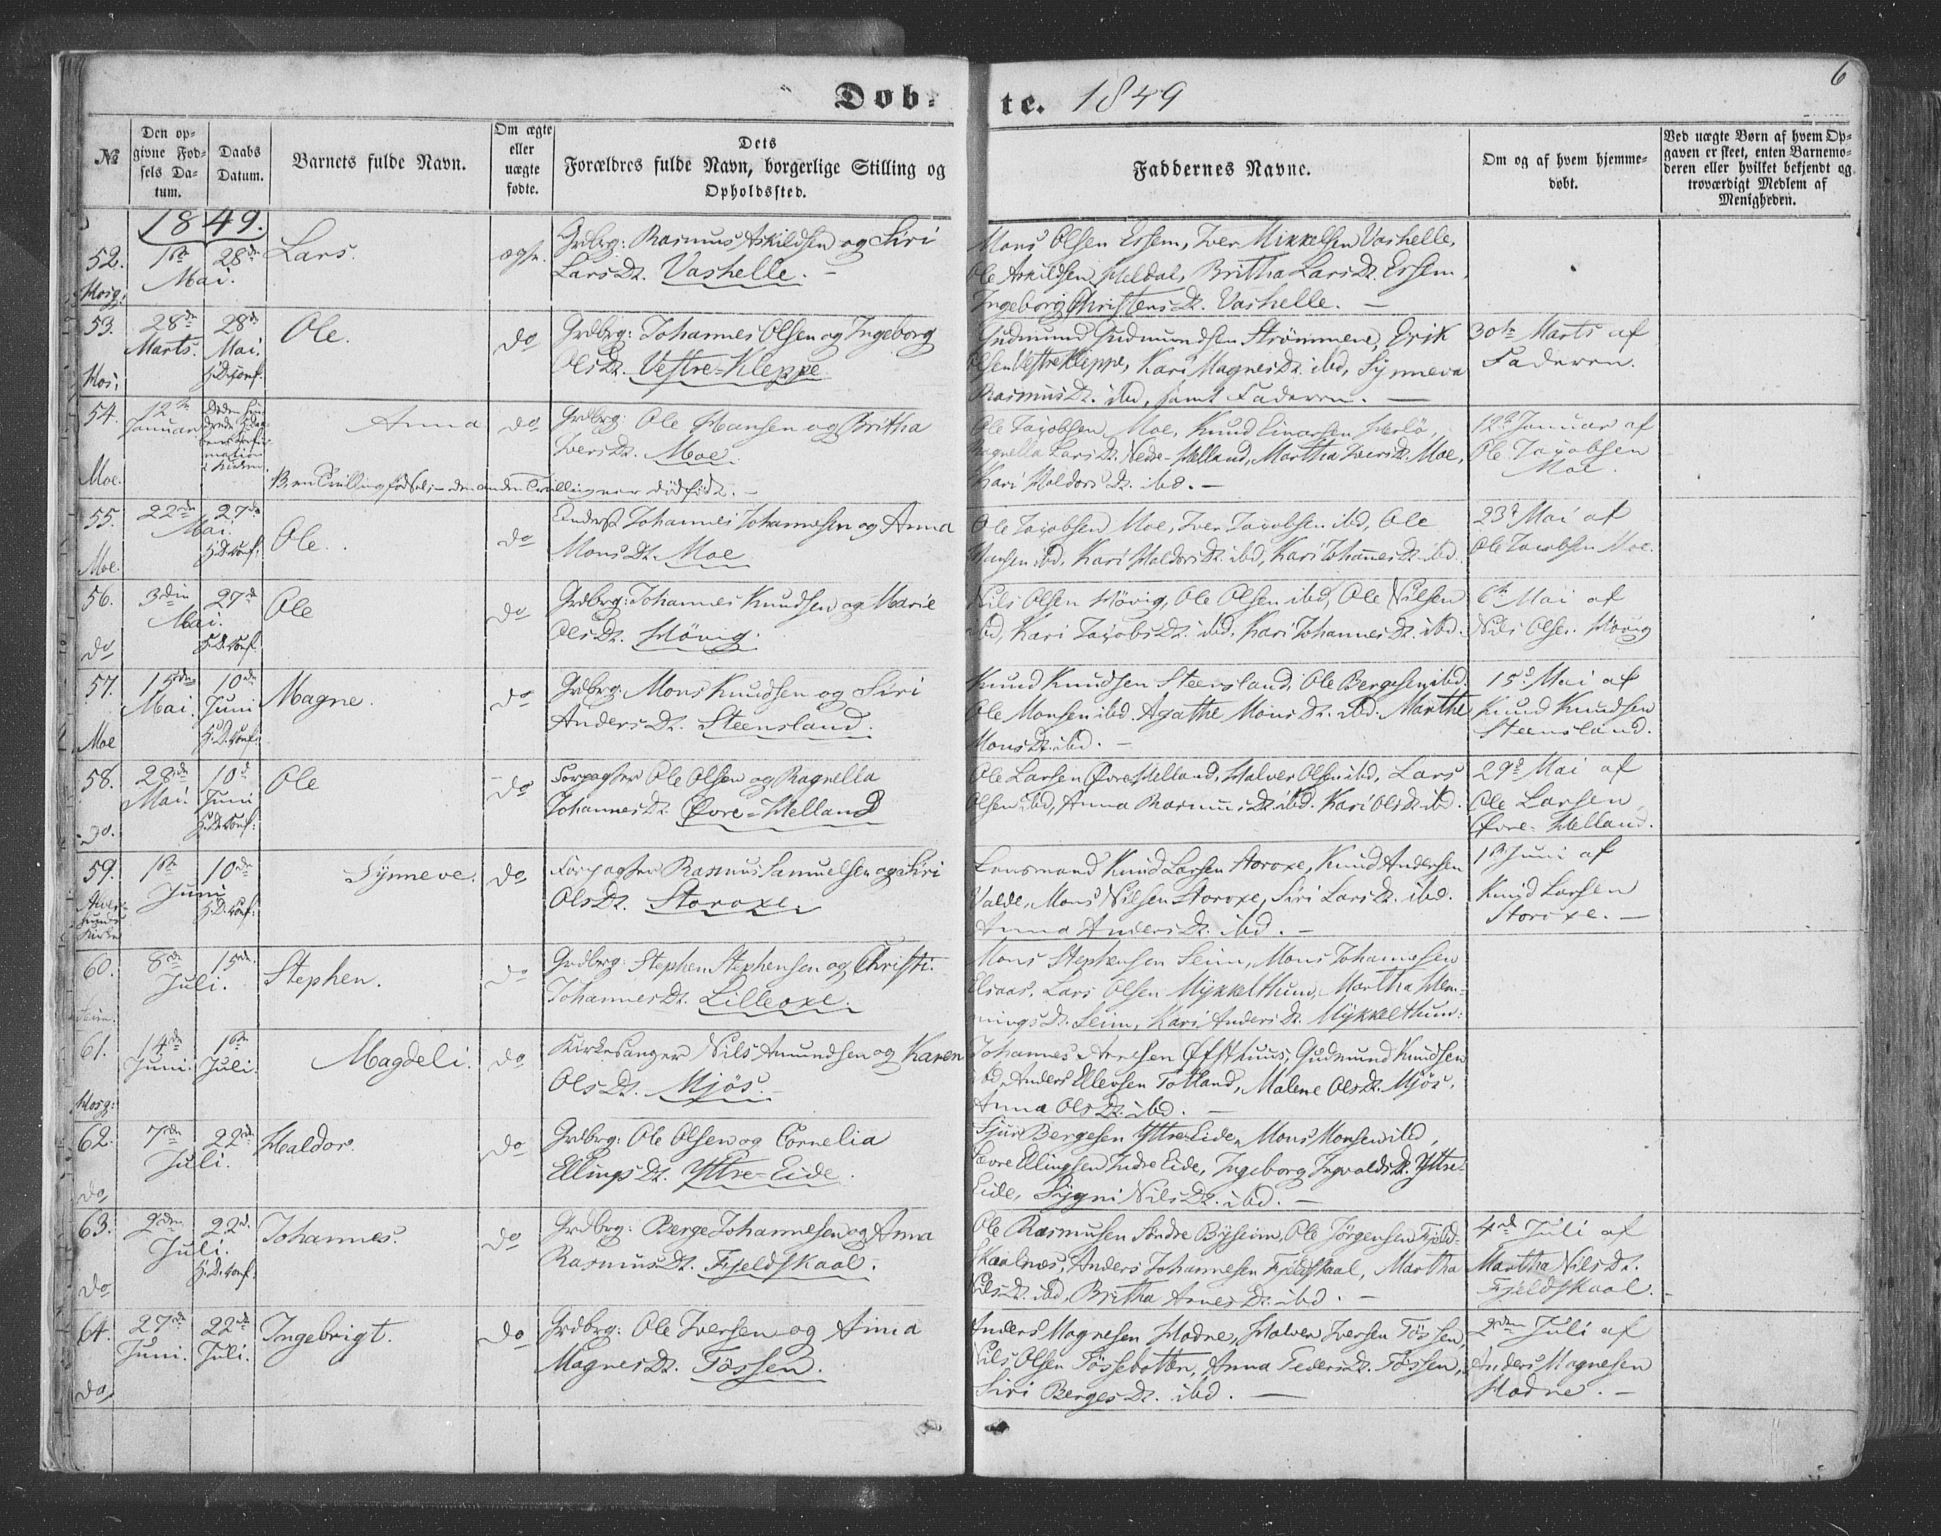 Døbte. 1849
6
№
Den opgivne Fødsels Datum.
Daabs Datum.
Barnets fulde Navn.
Om ægte eller uægte fødte.
Dets Forældres fulde Navn, borgerlige Stilling og Opholdssted.
Faddernes Navne.
Om og af hvem hjemmedøbt.
Ved uægte Børn af hvem Opgaven er skeet, enten Barnemoderen eller hvilket bekjendt og troværdigt Medlem af Menigheden.
1849.
52. 1ste 28de Lars. ægte. Grdbrg: Rasmus Askildsen og Siri
Mai.
LarsDr. Vashelle. –
Mons Olsen Essem, Iver Mikkelsen Vashelle,
Ole Askildsen Heldal, Britha LarsDr. Essem,
Ingeborg ChristensDr. Vashelle. –
53. 28de 28de Ole. do Grdbrg: Johannes Olsen og Ingeborg
Marts. Mai.
OlsDr. Vestre-Kleppe
Gudmund Gudmundsen Strømmene, Erik
Olsen Vestre Kleppe, Kari MagnesDr. ibd, Synneva
RasmusDr. ibd, samt Faderen. –
30te Marts af
Faderen.
54. 12te Anna do Grdbrg: Ole Hansen og Britha
Januar
IversDr. Moe.
Moe.
Ole Jacobsen Moe, Knud Einarsen
LarsDr. Nedre-Helland, Martha IversDr. Moe,
Kari HaldorsDr. ibd. –
12te Januar af
Ole Jacobsen
Moe.
55. 22de 27de Ole. do
Mai
Johannes Johannesen og Anna
MonsDr. Moe
Moe.
Ole Jacobsen Moe, Iver Jacobsen ibd, Ole
Hansen ibd, Kari HaldorsDr. ibd, Kari JohannesDr. ibd.
23de Mai af
Ole Jacobsen Moe.
56. 3die 27de Ole do Grdbrg: Johannes Knudsen og Marie
Mai.
OlsDr. Høvig.
do
Nils Olsen Høvig, Ole Olsen ibd, Ole Nilsen
ibd, Kari JacobsDr. ibd. Kari JohannesDr. ibd.
6te Mai af
Nils Olsen Høvig
57. 15de 10de Magne. do Grdbrg: Mons Knudsen og Siri
Mai. Juni
AndersDr. Steensland.
Moe
Knud Knudsen Steensland, Ole Bergesen ibd.
Ole Monsen ibd. Agathe MonsDr. ibd. Marthe
MonsDr. ibd. –
15de Mai af
Knud Knudsen
Steensland.
58. 28de 10de Ole do Forpagter Ole Olsen og Ragnella
Mai. Juni
JohannesDr. Øvre-Helland
do.
Ole Larsen Øvre Helland, Halver Olsen ibd, Lars
Olsen ibd, Anna RasmusDr. ibd. Kari OlsDr. ibd.
29de Mai af
Ole Larsen
Øvre-Helland.
59. 1ste 10de Synneve. do Forpagter Rasmus Samuelsen og Siri
Juni
OlsDr. Storoxe.
Lensmand Knud Larsen Storoxe, Knud Andersen
Valde, Mons Nilsen Storoxe, Siri LarsDr. ibd.
Anna AndersDr. ibd. –
1ste Juni af
Knud Larsen
Storoxe. –
60. 8de 15de Stephen. do Grdbrg: Stephen Stephensen og Christi
Juli.
JohannesDr. Lilleoxe.
Mons Stephensen Seim, Mons Johannesen
Elsaas, Lars Olsen Mykkelthun, Martha Hem-
ningsDr. Seim, Kari AndersDr. Mykkelthun.
61. 14de 1ste Magdeli. do Kirkesanger Nils Amundsen og Karen
Juni. Juli.
OlsDr. Mjøs. –
Johannes Arnesen Øfsthuus, Gudmund Knudsen
ibd, Anders Ellevsen Totland, Malene OlsDr. Mjøs.
Anna OlsDr. ibd. –
62. 7de 22de Haldor. do Grdbrg: Ole Olsen og Cornelia
Juli.
EllingsDr. Yttre-Eide.
do
Sjur Bergesen Yttre Eide, Mons Monsen ibd,
Ellingsen Indre Eide, Ingeborg IngvaldsDr. Yttre-
Eide, Sygni NilsDr. ibd. –
63. 2den 22de Johannes. do Grdbrg: Berge Johannesen og Anna
Juli.
RasmusDr. Fjeldskaal.
do
Ole Rasmusen Søndre Byseim, Ole Jørgensen Fjeld-
skaalnæs, Anders Johannesen Fjeldskaal, Martha
NilsDr. ibd, Britha ArnesDr. ibd. –
4de Juli af
Martha NilsDr.
Fjeldskaal.
64. 27de 22de Ingebrigt. do Grdbrg: Ole Iversen og Anna
Juni. Juli.
MagnesDr. Tøssen.
do.
Anders Magnesen Hodne, Halver Iversen Tøssen,
Nils Olsen Tøssebotten, Anna PedersDr. Tøssen,
Siri BergesDr. ibd. –
2den Juli af
Anders Magnesen
Hodne. –